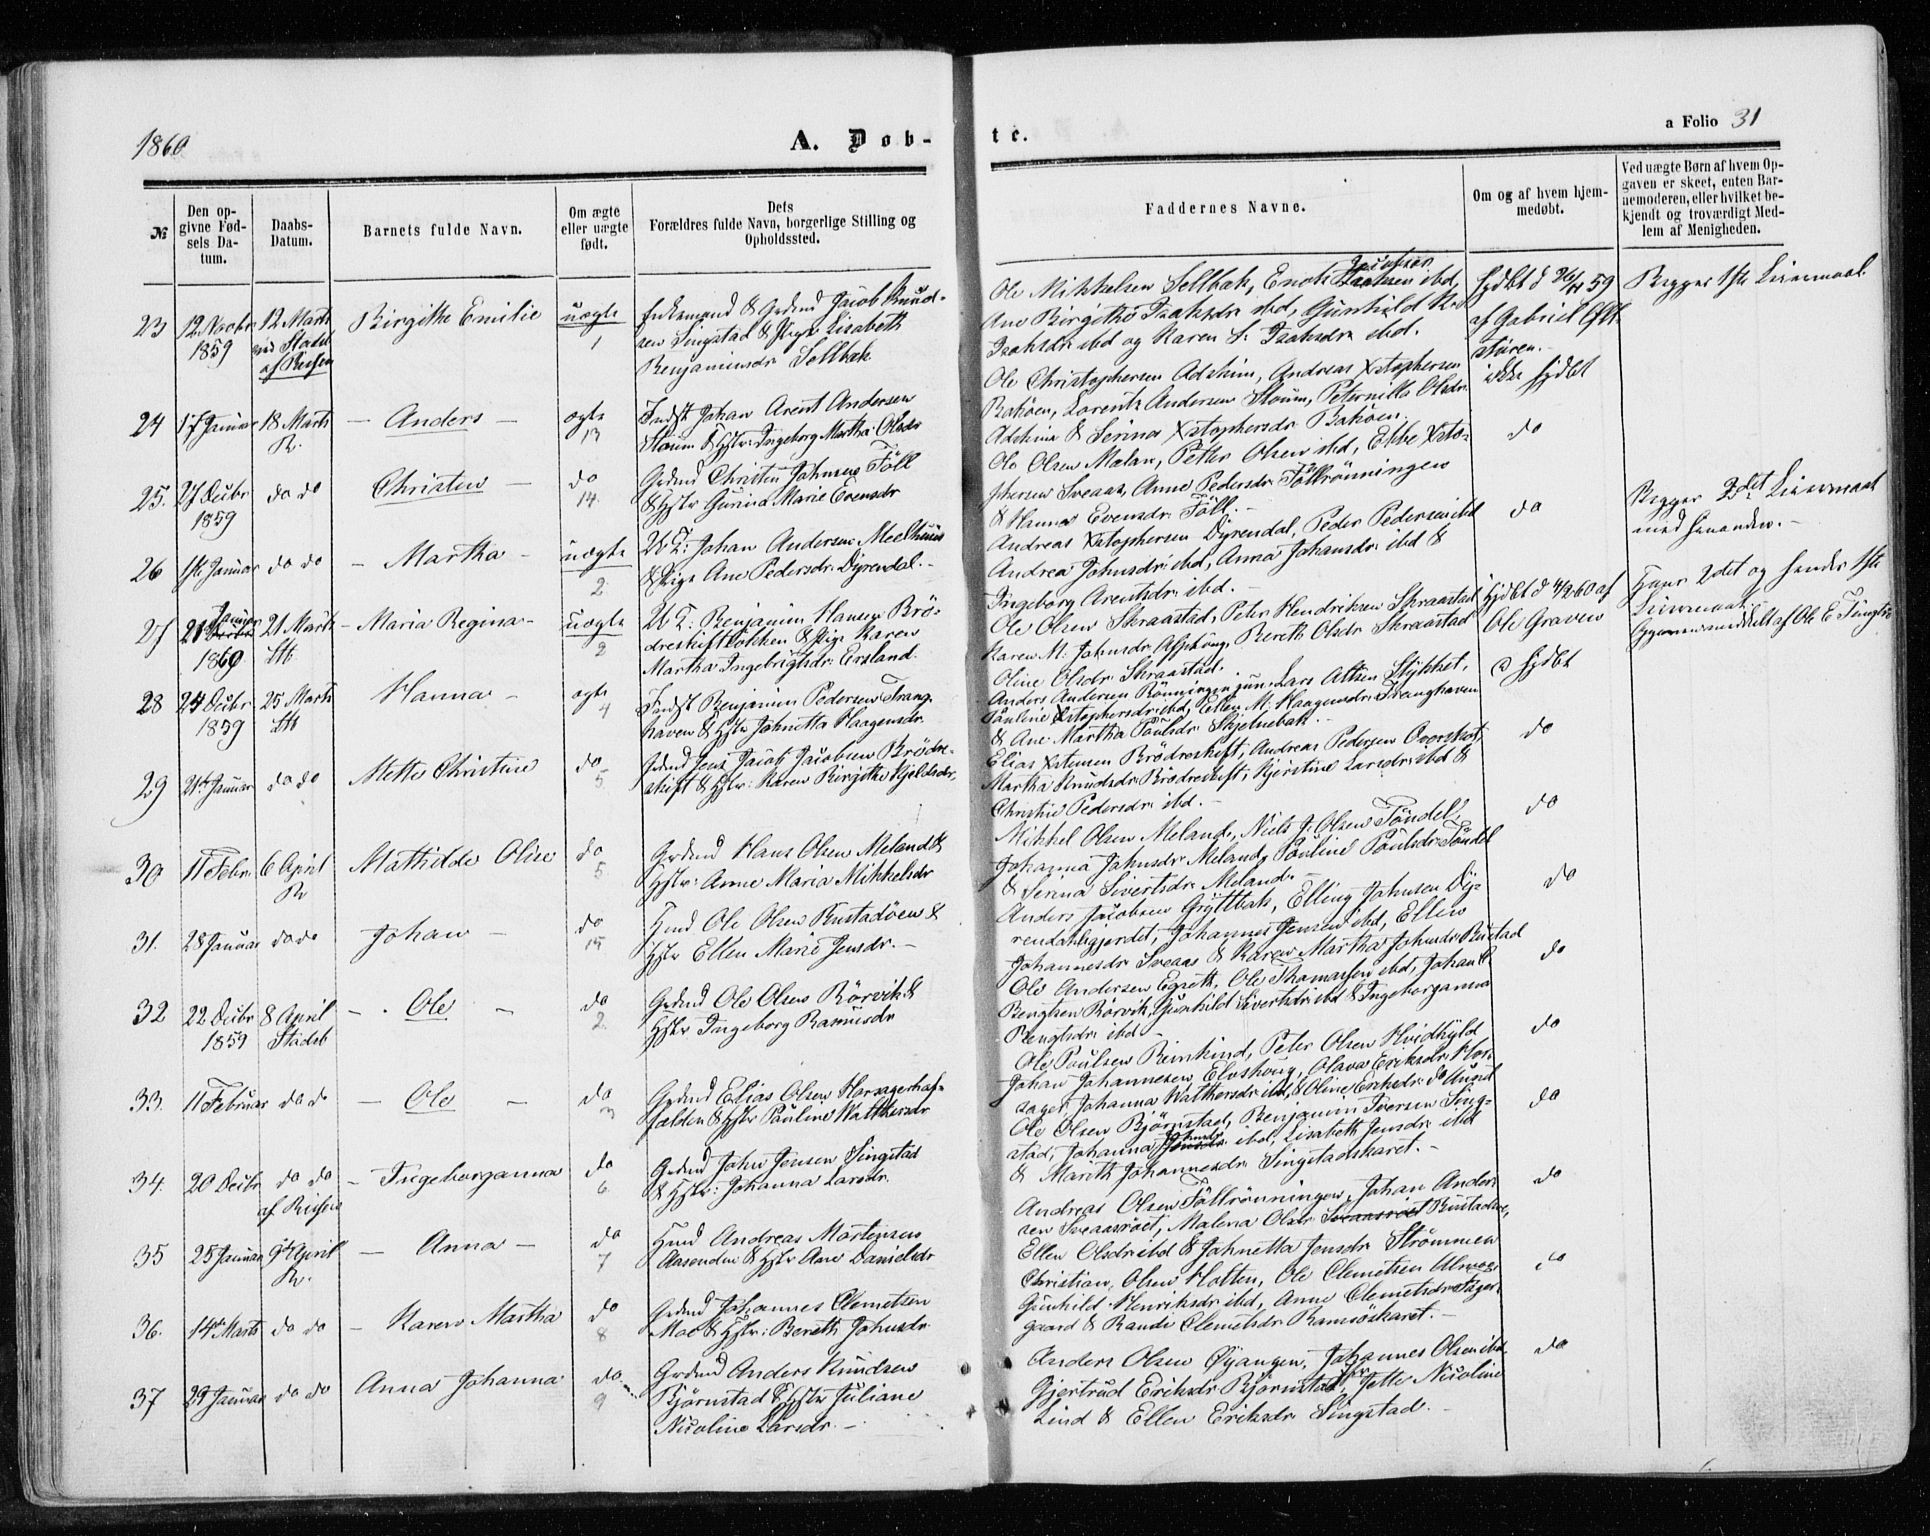 1860
A. Døbte.
a Folio 31
№
Den opgivne Fødsels Datum.
Daabs-Datum.
Barnets fulde Navn.
Om ægte eller uægte født.
Dets Forældres fulde Navn, borgerlige Stilling og Opholdssted.
Faddernes Navne.
Om og af hvem hjemmedøbt.
Ved uægte Børn af hvem Opgaven er skeet, enten Barnemoderen, eller hvilket bekjendt og troværdigt Medlem af Menigheden.
23 12 Novbr 1859 12 Marts Birgithe Emilie uægte 1
Enkemand & Grdmd Jacob Knud-
sen Singstad & Pige Lisabeth
Benjaminsdr Selbak
Ole Mikkelsen Selbak, Enok Jacobsen ibd,
Ane Birgithe Isaksdr ibd, Gunhild
Isaksdr ibd og Karen Isaksdr ibd.
Begges 1ste Leiermaal
24 17 Januar 18 Marts R. - Anders - ægte 13
Indst Johan Arent Andersen
Moum & Hstr Ingeborg Martha Olsdr
Ole Christophersen Adshim, Andreas Xstophersen
Bakøen, Lorentz Andersen Moum, Peternilla Olsdr
& Serina Xstophersdr Bakøen.
ikke hjdbt
25. 27 Decbr 1859 do do Christen - do 14
Grdmd Christen Johnsen Föll
& Hstr Gurina Marie Evensdr
Ole Olsen Malan, Peter Olsen ibd, Ebbe Xsto-
phersen Sveaas, Anne Pedersdr Föllrönningen
& Hanna Evensdr Föll. -
do
26 Januar do do - Martha - uægte 2
Johan Andersen Meelhuus
& Pige Ane Pedersdr Dyrendal. -
Andreas Xstophersen Dyrendal, Peder Pedersen ibd
Andrea Johnsdr ibd, Anna Johansdr ibd &
Ingeborg Arentsdr ibd. -
do
Begges 2det Leiermaal
med hinanden. -
27 21 Januar 1860 21 Marts - Maria Regina - uægte 2
Benjamin Hansen Brö-
dreskift & Pige Karen
Martha Ingebrigtsdr Ersland.
Ole Olsen Skraastad, Peter Hendriksen Skraastad
Karen M. Johnsdr, Bereth Olsdr Skraastad
Oline Olsdr Skraastad.
Hjdbt d 4/2 60 af
Ole Graven
Hans 2det og hendes 1ste
Leiermaal
28 Decbr 1859 25 Marts Hanna - ægte 4
Indst Benjamin Pedersen Trang-
haven & Hstr Johnetta Haagensdr.
Anders Andersen Rönningen jun. Lars Stykket,
Pauline Xstophersdr ibd, Ellen M. Haagensdr Tranghaven
& Ane Martha Paulsdr Skjelnebak. -
29 21de Januar do do Mette Christine do 5
Grdmd Jens Jacob Jacobsen Brödre-
skift & Hstr: Karen Birgithe Kjeldsdr.
Elias Brödreskift, Andreas Pedersen
Martha Knudsdr Brödreskift, Kjerstine Larsdr ibd &
Christine Pedersdr ibd. -
do
30 11 Febr. 6 April R Mathilde Oline do 5
Grdmd Hans Olsen Meland &
Hstr: Anne Maria Mikkelsdr
Mikkel Olsen Meland, Niels J. Olsen Töndel,
Johanna Johnsdr Meland, Pauline Paulsdr Töndel
& Serina Sivertsdr Meland. -
do
31. 28 Januar do do Johan - do 15
Hmd Ole Olsen Rustadöen &
Hstr Ellen Marie Jensdr. -
Anders Jacobsen Gryttbak, Elling Johnsen Dy-
rendalsgjerdet, Johannes Jensen ibd, Ellen
Johannesdr Sveaas & Karen Martha Johnsdr Rustad
do
32 22 Decbr 1859 8 April Stadsb - Ole - do 2
Grdmd Ole Olsen Rörvik &
Hstr Ingeborg Rasmusdr
Ole Andersen, Ole Thomassen ibd, Johan
Bengtsen Rörvik, Gunhild Sivertsdr ibd & Ingeborganna
Bengtsdr ibd -
do
33. 11 Februar do do - Ole - do 3
Grdmd Elias Olsen
& Hstr Pauline Walthersdr
Ole Paulsen, Peter Olsen Hvidkyld
Johan Johannesen Elvshoug, Olava Eriksdr
Johanna Walthersdr ibd, & Oline Eriksdr
do
34. 20 Decbr do do - Ingeborganna do 6
Grdmd John Jensen Singstad
& Hstr: Johanna Larsdr.
Ole Olsen Bjørnstad, Benjamin Iversen Sing-
stad, Johanna Johnsdr ibd, Lisabeth Jensdr ibd
& Marith Johannesdr Singstadskaret. -
do
35 25 Januar 9de April R. - Anna - do 7
Hmd Andreas Mortensen
Aasenden & Hstr Ane Danielsdr
Andreas Olsen Föllrönningen, Johan Ander-
sen, Malena Olsdr Rustadöen,
Ellen Olsdr ibd & Johnetta Jensdr Strømmen
do
36. 14de Marts do do - Karen Martha do 8
Grdmd Johannes Clemetsen
Moe & Hstr: Bereth Johnsdr
Christian Olsen Holten, Ole Clemetsen
Gunhild Henriksdr ibd, Anne Clemetsdr
gaard & Randi Clemetsdr Ramsöskaret. -
do
37 29 Januar do do Anna Johanna do 9
Grdmd Anders Knudsen
Bjørnstad & Hstr Juliane
Nicoline Larsdr. -
Anders Olsen Øyangen, Johannes Olsen ibd,
Gjertrud Eriksdr Bjørnstad, Jette Nicoline
Lind & Ellen Eriksdr Singstad. -
do